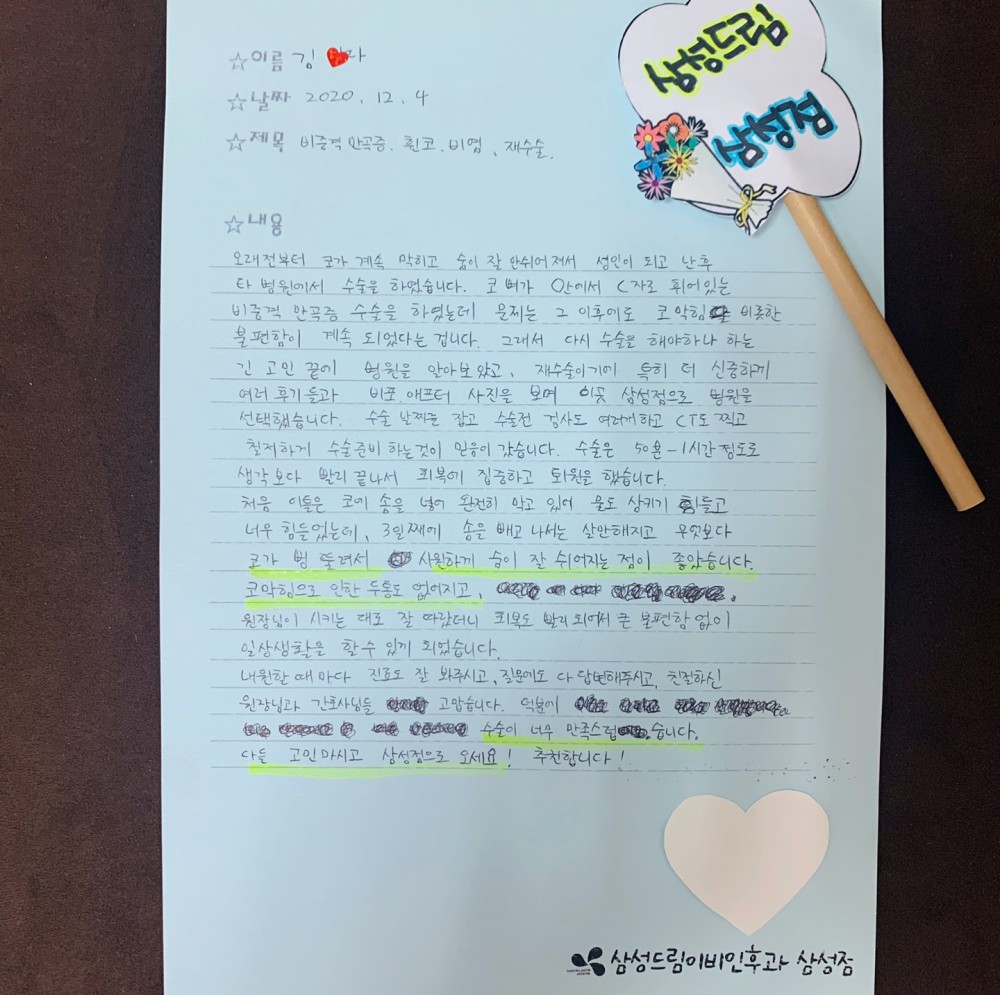 삼성드림
삼성점
☆이름 김
☆날짜 2020. 12. 4
☆제목 비중격 만곡증. 휜코. 비염, 재수술.
☆내용
오래전부터 코가 계속 막히고 숨이 잘 안쉬어져서 성인이 되고 난후
타 병원에서 수술을 하였습니다. 코 뼈가 안에서 C자로 휘어있는
비중격 만곡증 수술을 하였는데 문제는 그 이후에도 코막힘 비롯한
불편함이 계속 되었다는 겁니다. 그래서 다시 수술을 해야하나 하는
긴 고민 끝에 병원을 알아보았고, 재수술이기에 특히 더 신중하게
여러 후기들과 비포.애프터 사진을 보며 이곳 삼성점으로 병원을
선택했습니다. 수술 날짜를 잡고 수술전 검사도 여러개하고 CT도 찍고
철저하게 수술준비 하는것이 믿음이 갔습니다. 수술은 50분-1시간 정도로
생각보다 빨리 끝나서 회복에 집중하고 퇴원을 했습니다.
처음 이틀은 코에 솜을 넣어 완전히 막고 있어 물도 삼키기 힘들고
너무 힘들었는데, 3일째에 솜을 빼고 나서는 살만해지고 무엇보다
코가 뻥 뚫려서 시원하게 숨이 잘 쉬어지는 점이 좋았습니다.
코막힘으로 인한 두통도 없어지고,
원장님이 시키는 대로 잘 따랐더니 회복도 빨리 되어서 큰 불편함 없이
일상생활을 할 수 있게 되었습니다.
내원할 때 마다 진료도 잘 봐주시고, 질문에도 다 답변해주시고, 친절하신
원장님과 간호사님들 고맙습니다. 덕분에
수술이 너무 만족스럽 습니다.
다들 고민마시고 삼성점으로 오세요! 추천합니다!
삼성드림이비인후과 삼성점